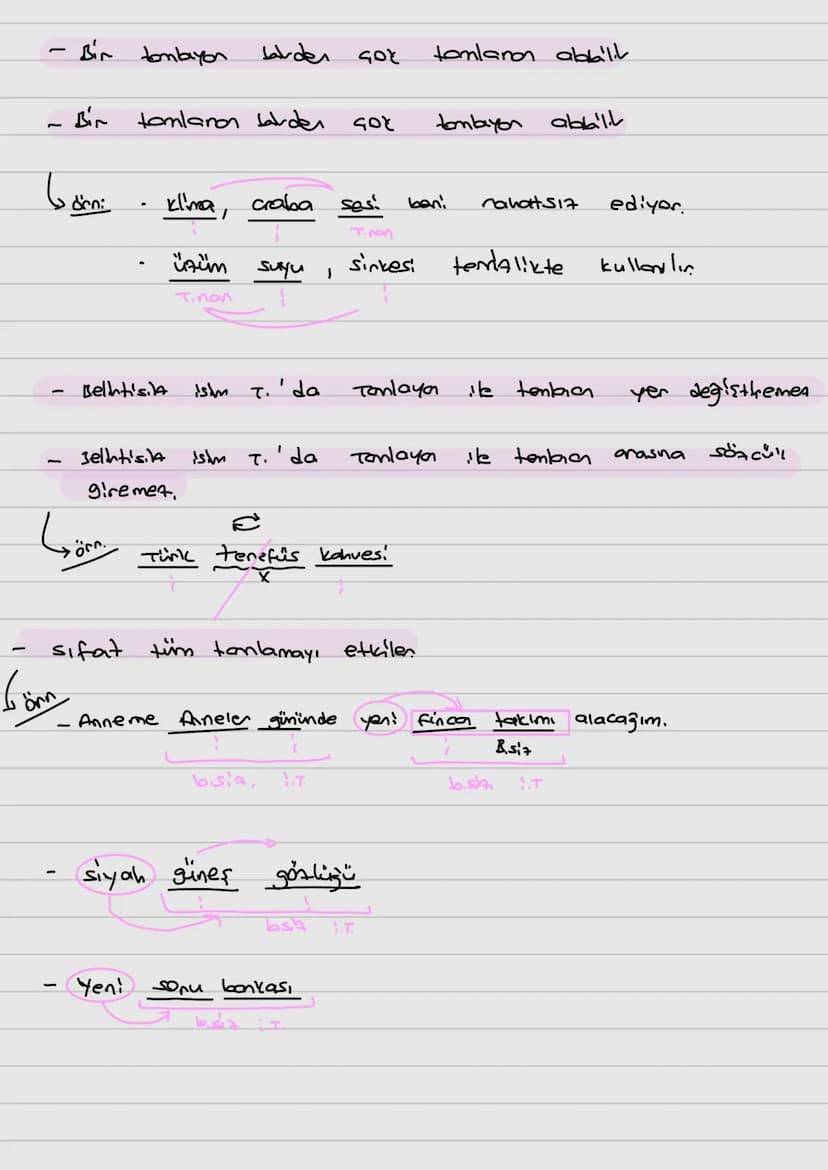 - Bir tamlayan birden çok tamlanan alabilir
- Bir tamlanan birden çok tamlayan alabilir
↳ örn: · Klima, araba sesi beni rahatsız ediyor.
i i T.nan
· üzüm suyu, sirkesi temizlikte kullanılır.
T.nan i i
- Belirtisiz isim T.'da Tamlayan ile tamlanan yer değiştiremez
- Belirtisiz isim T.'da Tamlayan ile tamlanan arasına sözcük
giremez.
↳ örn. Türk teneffüs kahvesi
i x i
- sıfat tüm tamlamayı etkiler
↳ örn
- Anneme Anneler gününde yeni fincan takımı alacağım.
i i i B.siz
b.siz. i.T b.siz i.T
- siyah güneş gözlüğü
i i
b.siz i.T.
- Yeni soru bankası
b.siz i.T.